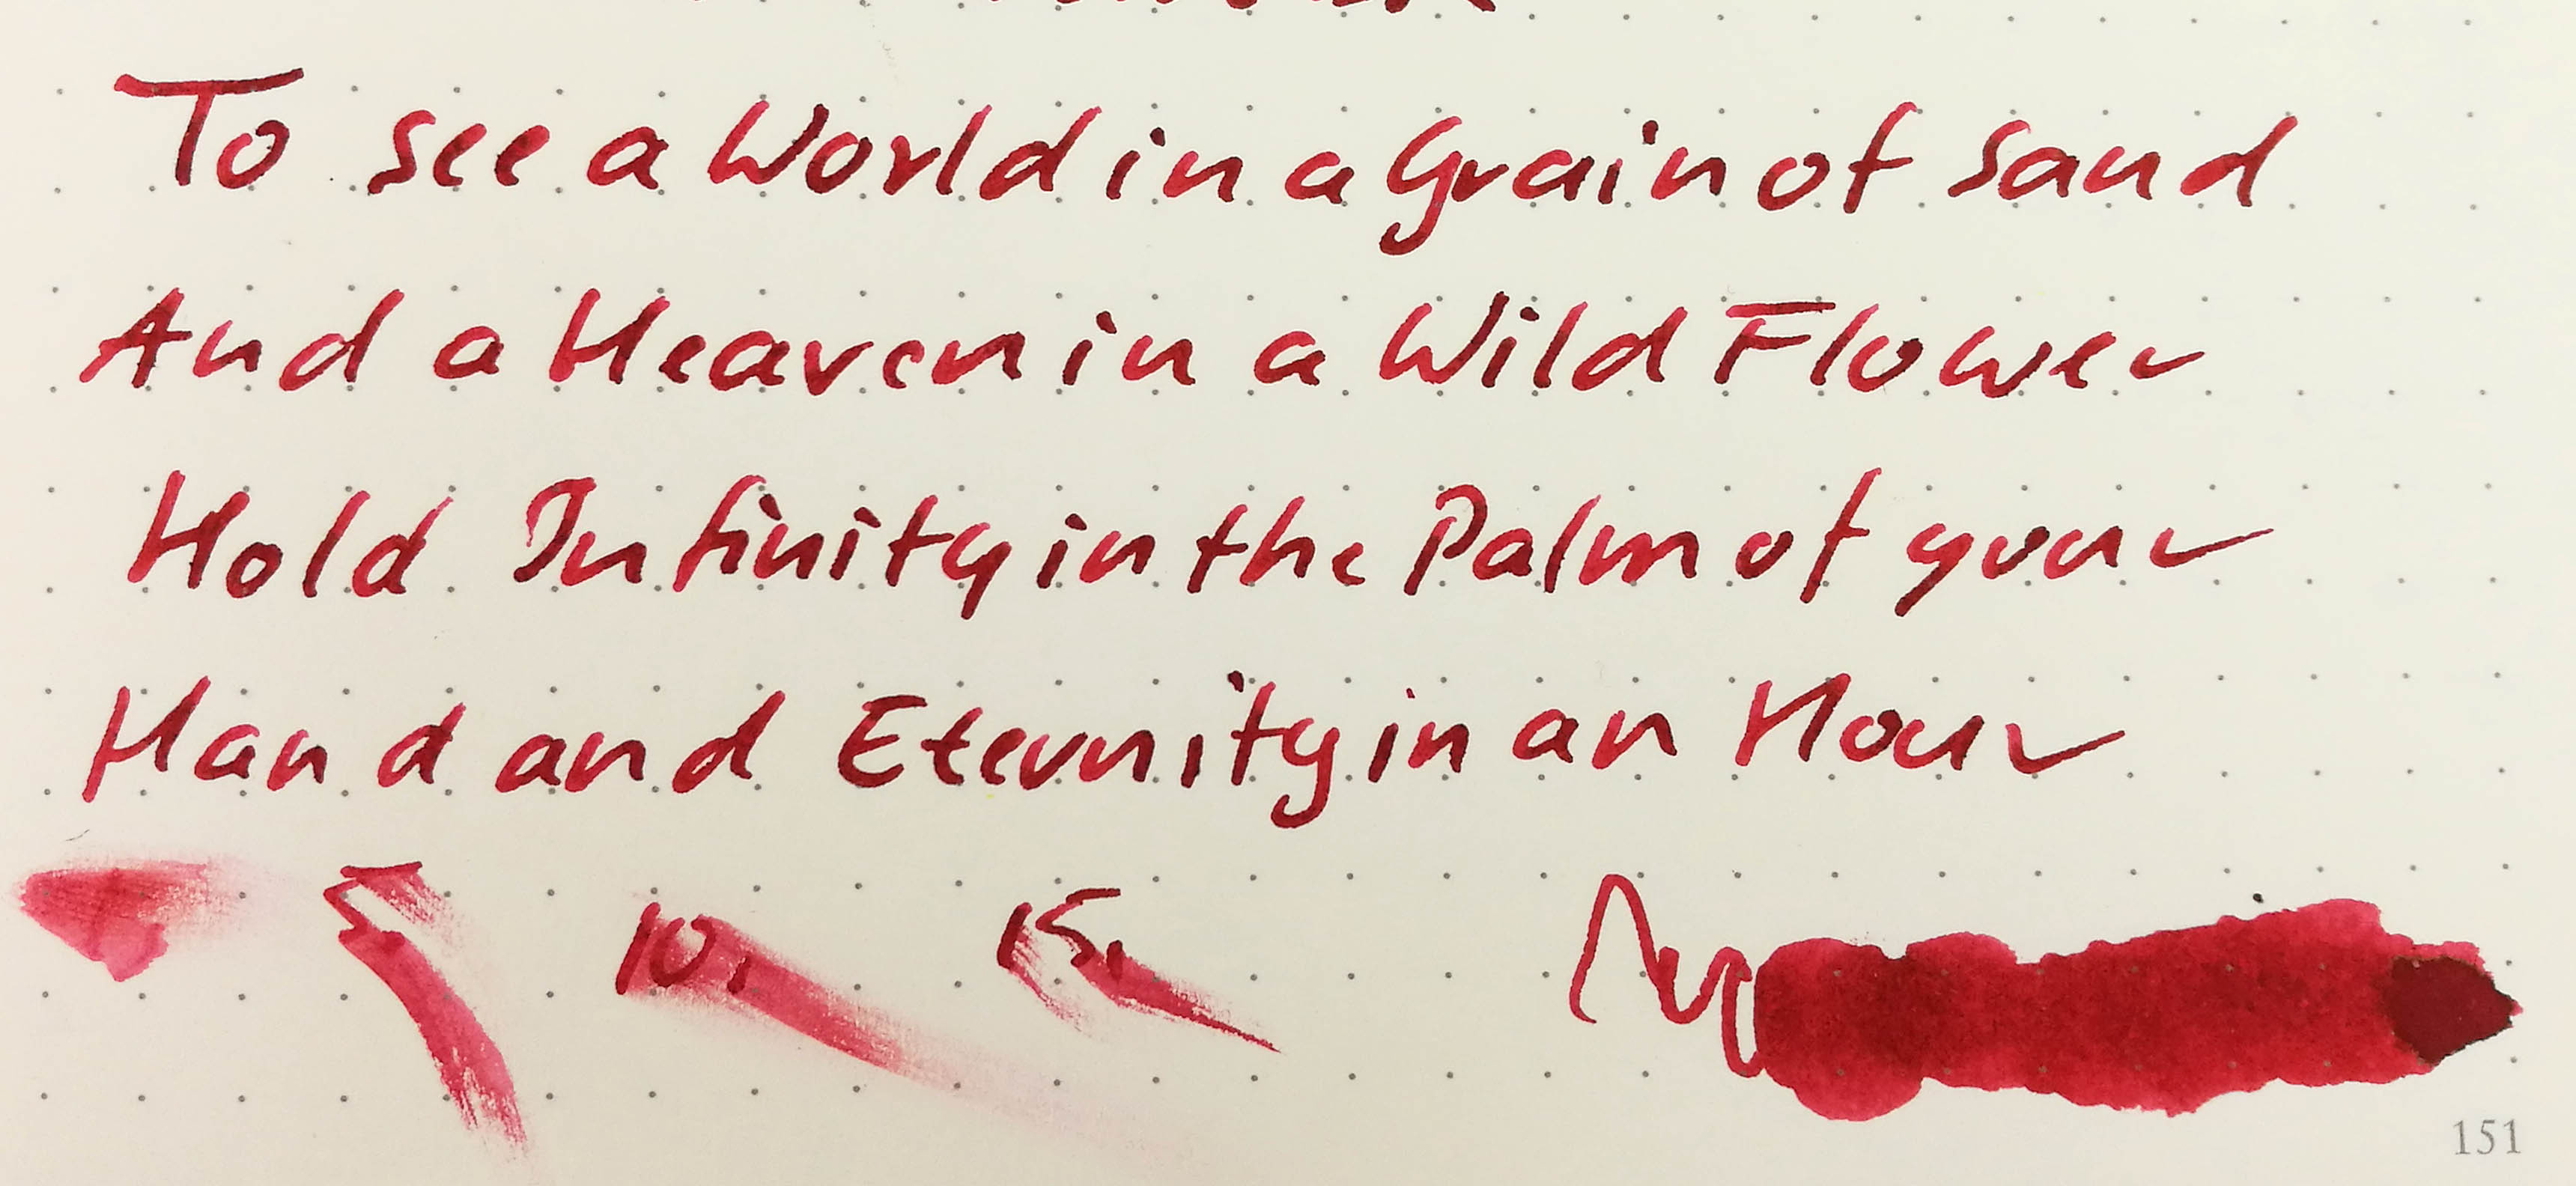 To see a World in a Grain of Sand
And a Heaven in a Wild Flower
Hold Infinity in the Palm of your
Hand and Eternity in an Hour
5 10, 15,
151